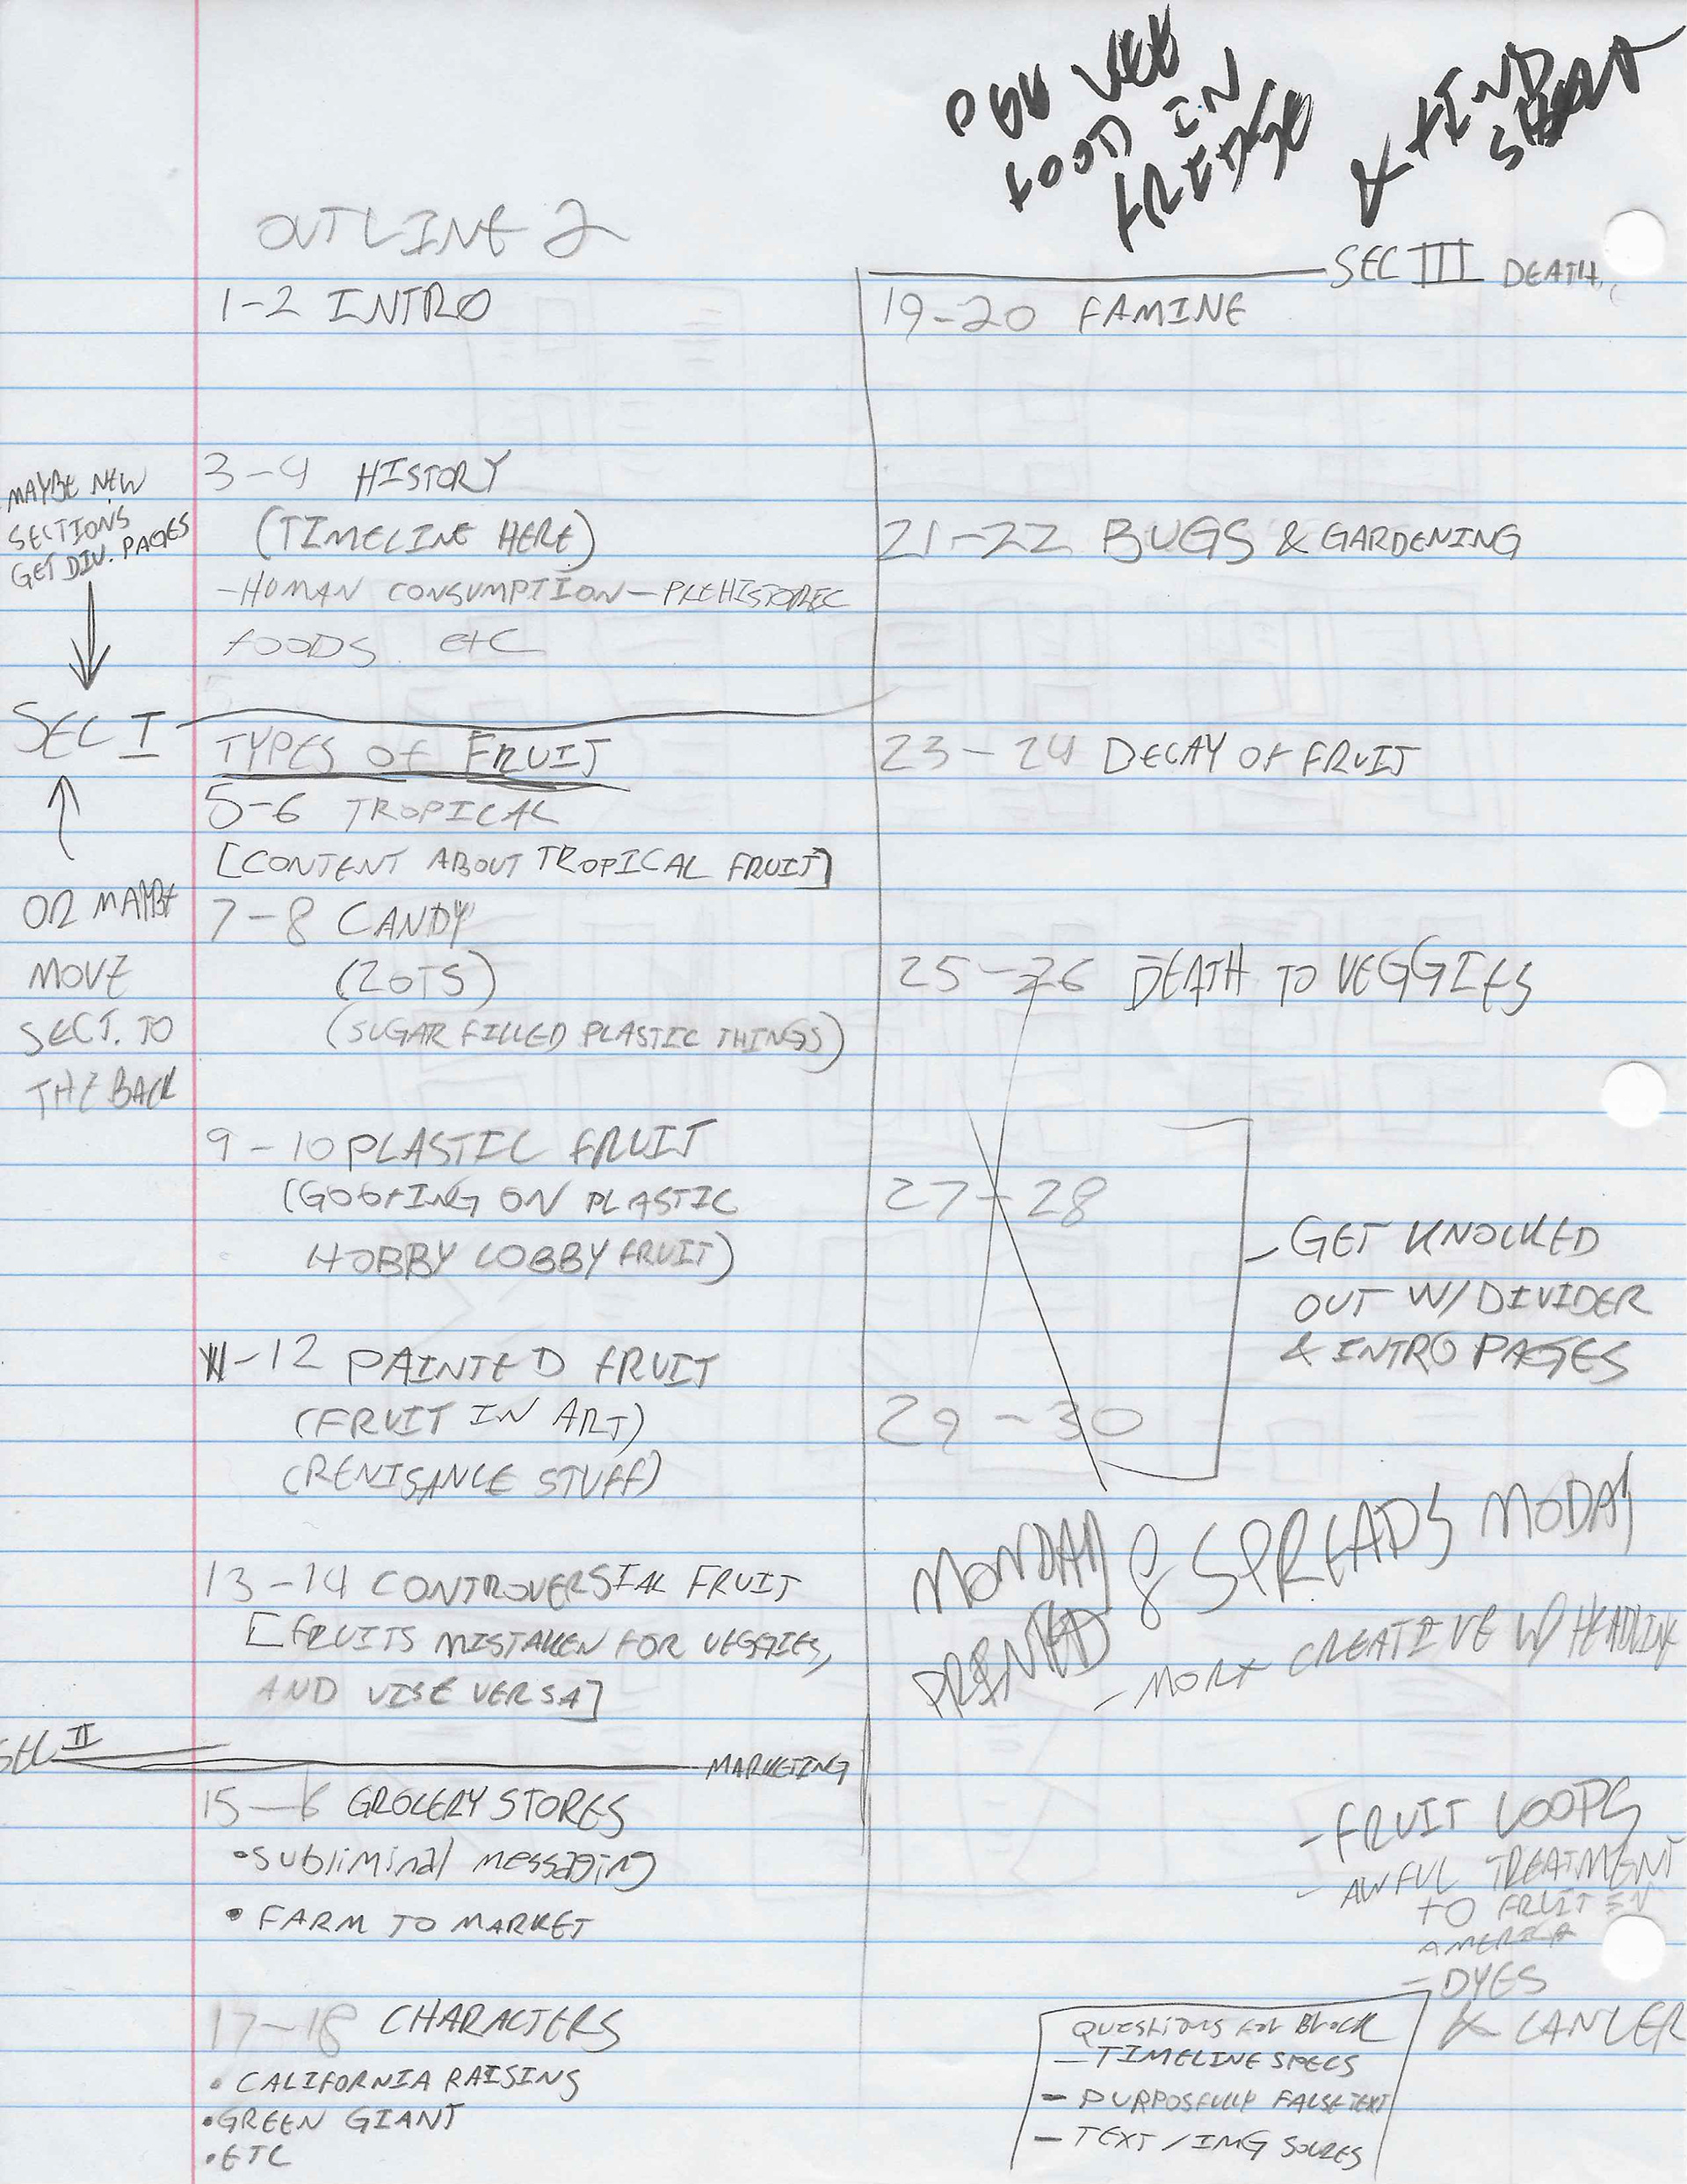 FOOD IN
& FIND
OUTLINE 2
1-2 INTRO
MAYBE NEW
SECTIONS
GET DIV. PAGES
3-4 HISTORY
(TIMELINE HERE)
-HUMAN CONSUMPTION-PREHISTORIC
FOODS ETC
SEC I
OR MAYBE
MOVE
SECT. TO
THE BACK
TYPES OF FRUIT
5-6 TROPICAL
[CONTENT ABOUT TROPICAL FRUIT]
7-8 CANDY
(ZOTS)
(SUGAR FILLED PLASTIC THINGS)
9-10 PLASTIC FRUIT
(GOOFING ON PLASTIC
HOBBY LOBBY FRUIT)
11-12 PAINTED FRUIT
(FRUIT IN ART)
(RENISANCE STUFF)
13-14 CONTROVERSIAL FRUIT
[FRUITS MISTAKEN FOR VEGGIES,
AND VISE VERSA]
SEC II
MARKETING
15-6 GROCERY STORES
•subliminal messaging
• FARM TO MARKET
17-18 CHARACTERS
• CALIFORNIA RAISINS
•GREEN GIANT
•ETC
SEC III DEATH
19-20 FAMINE
21-22 BUGS & GARDENING
23-24 DECAY OF FRUIT
25-26 DEATH TO VEGGIES
27-28
29-30
-GET KNOCKED
OUT W/ DIVIDER
& INTRO PAGES
MONDAY 8 SPREADS MODAY
PRINTED
-MORE CREATIVE W/ HEADLINE
-FRUIT LOOPS
- AWFUL TREATMENT
TO FRUIT IN
AMERICA
- DYES
& CANCER
QUESTIONS FOR BROCK
- TIMELINE SPECS
- PURPOSFULLY FALSE TEXT
- TEXT / IMG SOURES